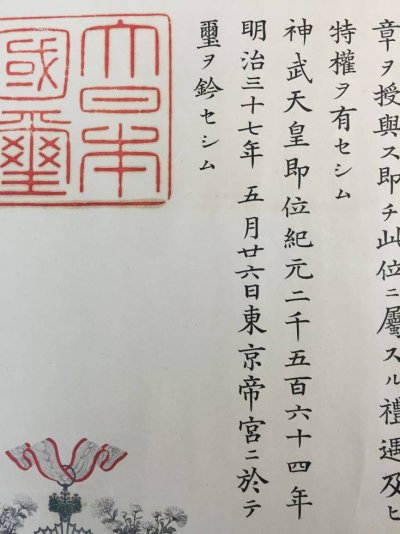 章ヲ授與ス即チ此位ニ屬スル禮遇及ヒ
特權ヲ有セシム
神武天皇即位紀元二千五百六十四年
明治三十七年五月廿六日東京帝宮ニ於テ
璽ヲ鈐セシム
大日本
國璽